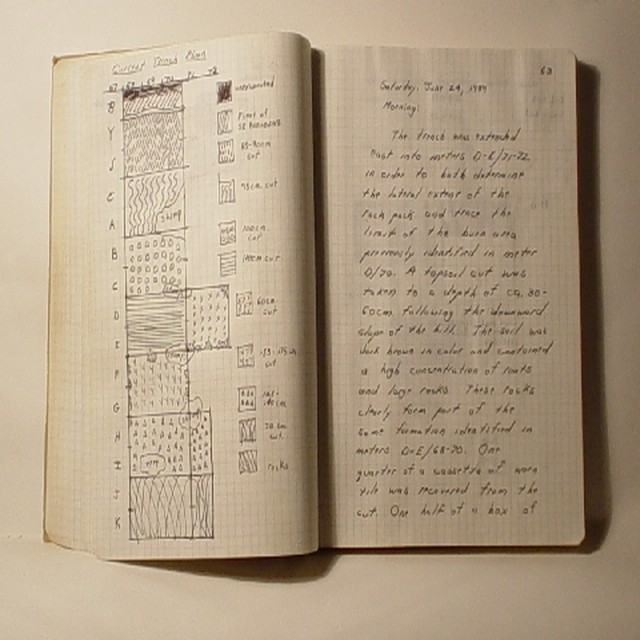 Current Trench Plan
unexcavated
cut
75cm. cut
100cm. cut
140cm cut
60cm. cut
cut
cut.
rocks
B
Y
C
A
B
C
D
E
F
G
H
I
J
K
63
Saturday, June 24, 1989
Morning:
The trench was extended
East into meters D-E/71-72
in order to both determine
the lateral extent of the
rock pack and trace the
limit of the burn area
previously identified in meter
D/70. A topsoil cut was
taken to a depth of ca. 30-
60cm. following the downward
slope of the hill. The soil was
dark brown in color and contained
a high concentration of roots
and large rocks. These rocks
clearly form part of the
same formation identified in
meters D-E/68-70. One
quarter of a cassetta of worn
tile was recovered from the
cut. One half of a box of